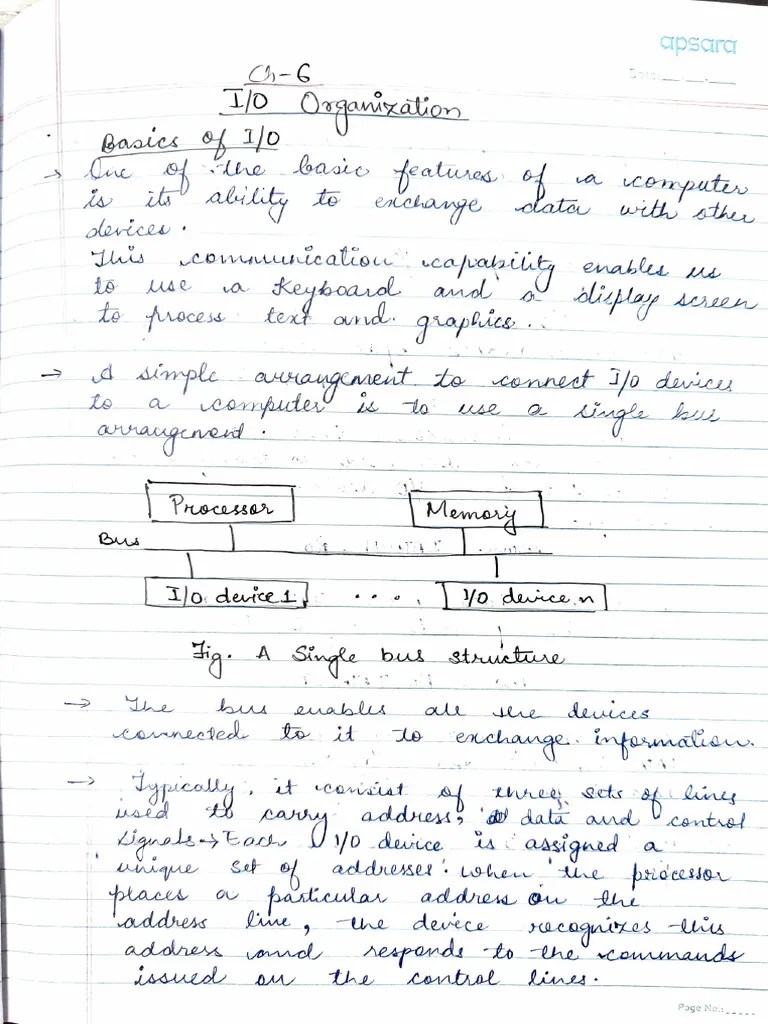 apsara
Date:
Ch-6
I/O Organization
Basics of I/O
→ One of the basic features of a computer
is its ability to exchange data with other
devices.
This communication capability enables us
to use a Keyboard and a display screen
to process text and graphics.
→ A simple arrangement to connect I/O devices
to a computer is to use a single bus
arrangement.
Processor Memory
Bus
I/O device 1 .... I/O device n
Fig. A Single bus structure
→ The bus enables all the devices
connected to it to exchange information.
→ Typically, it consist of three sets of lines
used to carry address, data and control
signals → Each I/O device is assigned a
unique set of addresses. when the processor
places a particular address on the
address line, the device recognizes this
address and responds to the commands
issued on the control lines.
Page No.: